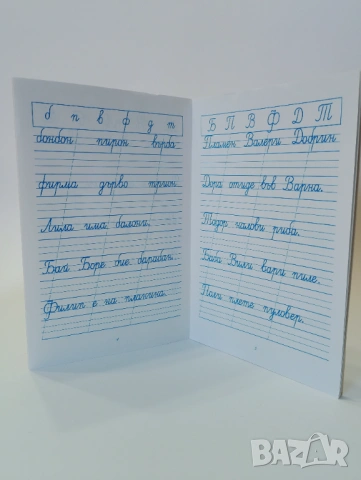 б п в ф д т
бонбон пирон върба
фирма дърво трион
Лили има балони.
Бай Боре бие барабан.
Филип е на планина.
Б П В Ф Д Т
Пламен Валери Добрин
Дора отиде във Варна.
Тодор налови риба.
Баба Вили вари пиле.
Поли плете пуловер.
BAZAR